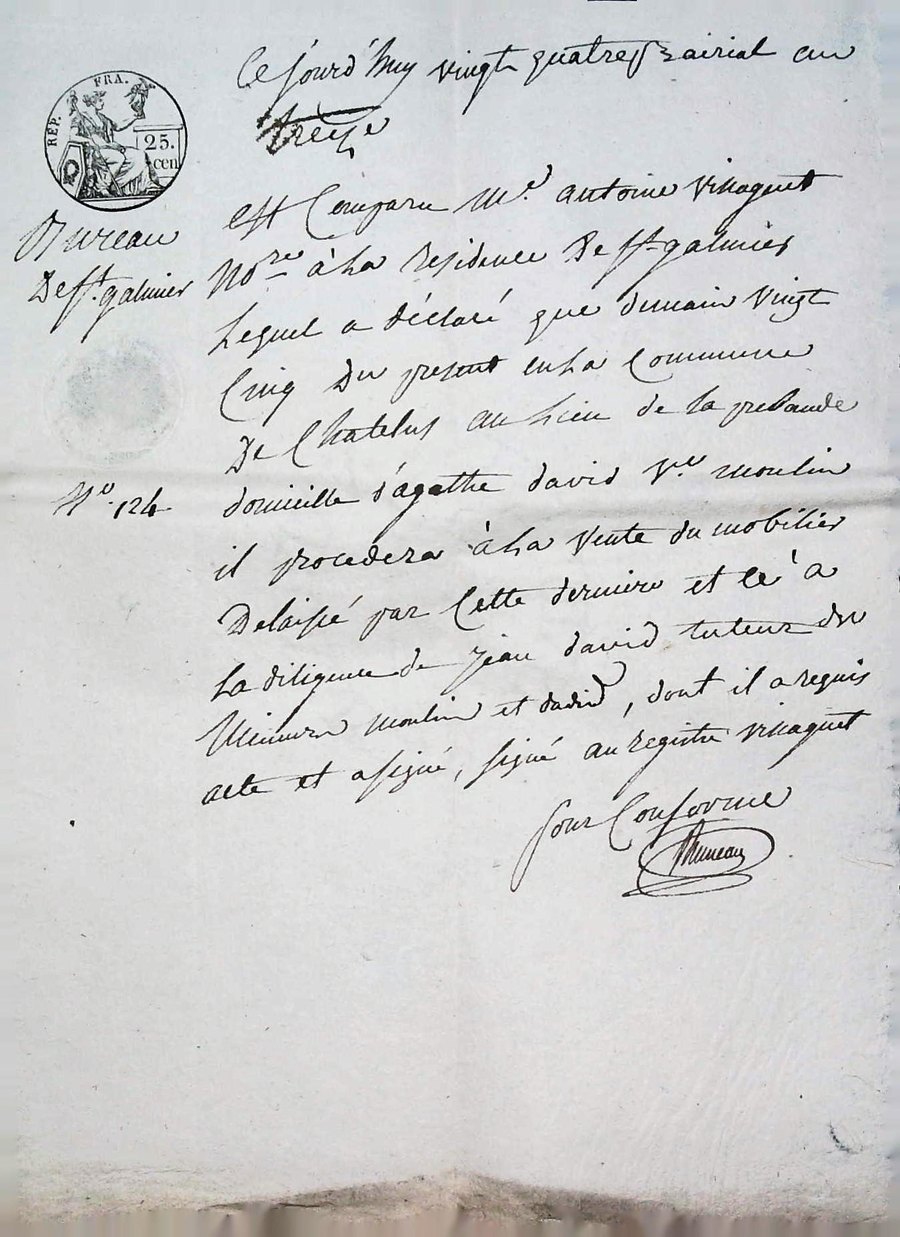 Ce jourd'huy vingt quatre prairial an
treize
REP. FRA.
25.
cen
Bureau
De St. galmier
N.º 124
est Comparu M.e antoine Viricel
No.re à La residence De St. galmier
Lequel a déclaré que demain vingt
Cinq du present en La Commune
De Chatelus au Lieu de la
domicille d'agathe david V.ve moulin
il procedera à La vente du mobilier
Delaissé par Cette derniere et ce a
La diligence de jean david tuteur des
Mineurs moulin et david, dont il a requis
acte et a signé, signé au registre
pour Conforme